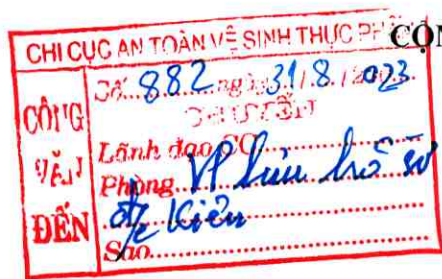 CHI CỤC AN TOÀN VỆ SINH THỰC PHẨM
CỘN
CÔNG VĂN ĐẾN
Số 882 ngày 31/8/2023
CHUYỂN
Lãnh đạo CC
Phòng VP lưu hồ sơ
đ/c Kiên
Sao